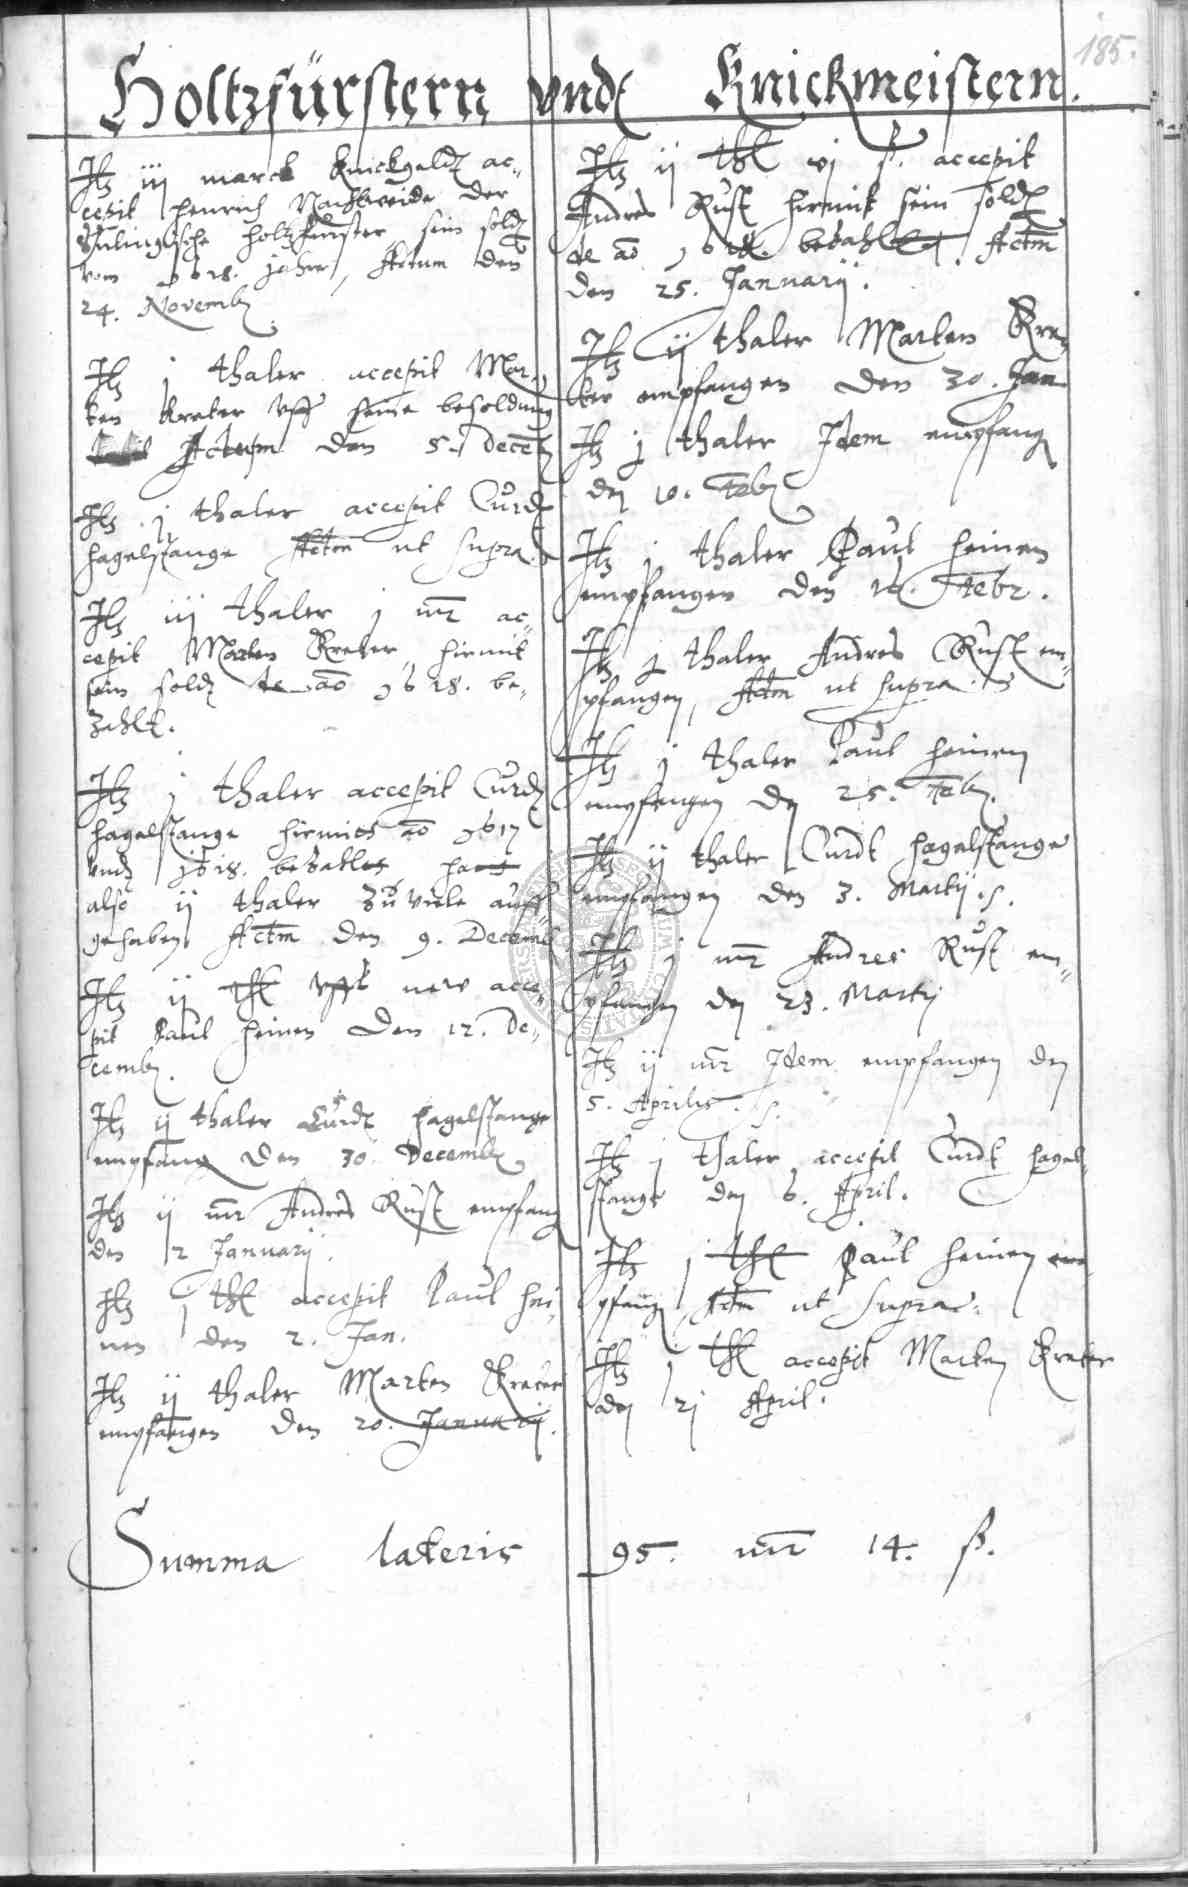 185.
Holtzfürstern vnd Knickmeistern.
Itz iij marck Knickgeldt ac-
cepit Henrich Nachtweide der
holtzfurster sein sold
vom 1618. jahre, Actum den
24. Novemb
Itz j thaler accepit Mar-
ten Kreter vff seine besoldung
Actum den 5. Decē
Itz j thaler accepit Curdt
Hagelstange Actm ut supra.
Itz iij thaler j mr ac-
cepit Marten Kreter, hirmit
sein sold de aō 1618. be-
zahlt.
Itz j thaler accepit Curdt
Hagelstange hirmit aō 1617
vnd 1618. bezahlet hat
also ij thaler zu viele auff
gehaben Actm den 9. Decemb
Itz ij thl vffs new acce-
pit Paul Heinen den 12. De-
cemb.
Itz ij thaler Curdt Hagelstange
empfang den 30. Decemb
Itz ij mr Andres Rust empfang
den 2 Januarij.
Itz j thl accepit Paul Hei-
nen den 2. Jan.
Itz ij thaler Marten Kreter
empfangen den 20. Januarij.
Itz ij thl vj ß. accepit
Andres Rust hirmit sein sold
de aō 1618. bezahlet. Actm
den 25. Januarij.
Itz ij thaler Marten Kre-
ter empfangen den 30. Jan
Itz j thaler Idem empfang
den 10. Feb
Itz j thaler Paul Heinen
empfangen den Febr.
Itz j thaler Andres Rust em-
pfangen, Actm ut supra.
Itz j thaler Paul Heinen
empfangen den 25. Feb.
Itz ij thaler Curdt Hagelstange
empfangen den 3. Martij.
Itz j mr Andres Rust em-
pfangen den 23. Martij
Itz ij mr Idem empfangen den
5. Aprilis.
Itz j thaler accepit Curdt Hagel-
stange den 6. April.
Itz j thl Paul Heinen em-
pfang Actm ut supra.
Itz j thl accepit Marten Kreter
den 21 April.
Summa lateris 95. mr 14. ß.